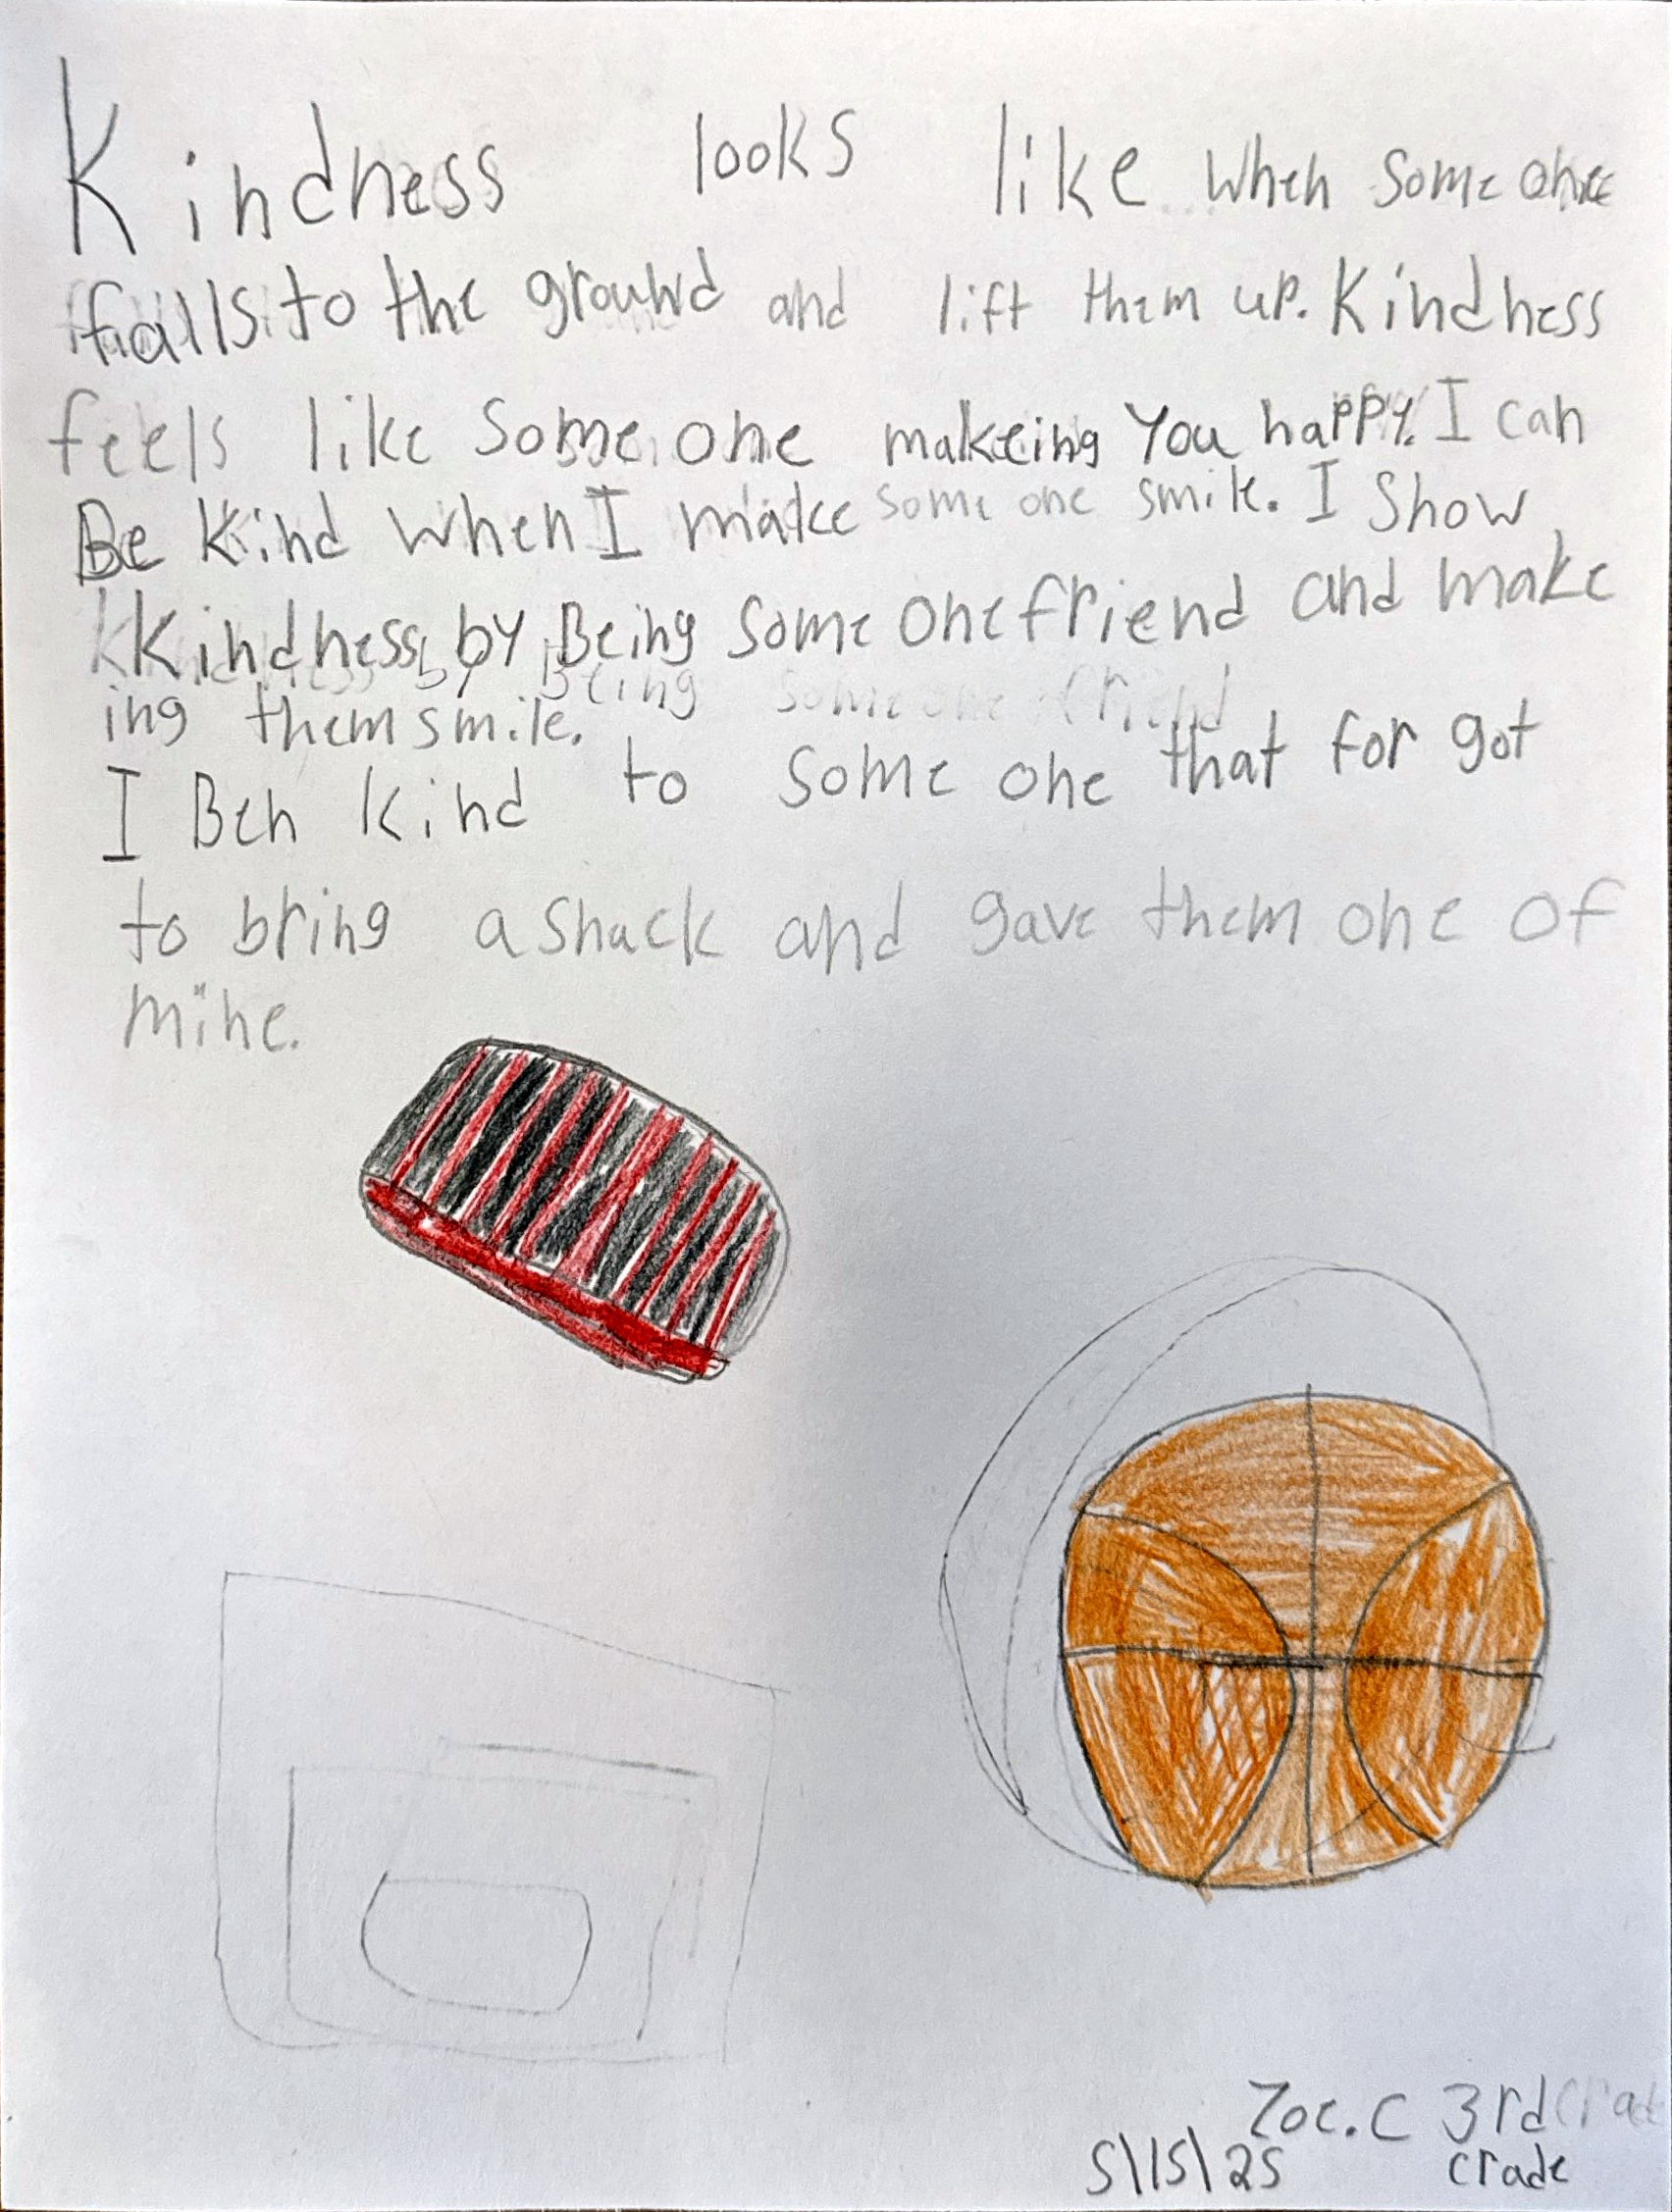 Kindness looks like when some one
falls to the ground and lift them up. Kindness
feels like some one makeing you happy. I can
Be kind when I make some one smile. I show
Kindness by Being some one friend and make
ing them smile.
I Ben kind to some one that for got
to bring a snack and gave them one of
mine.
Zoe.C 3rd
5\15\25 crade